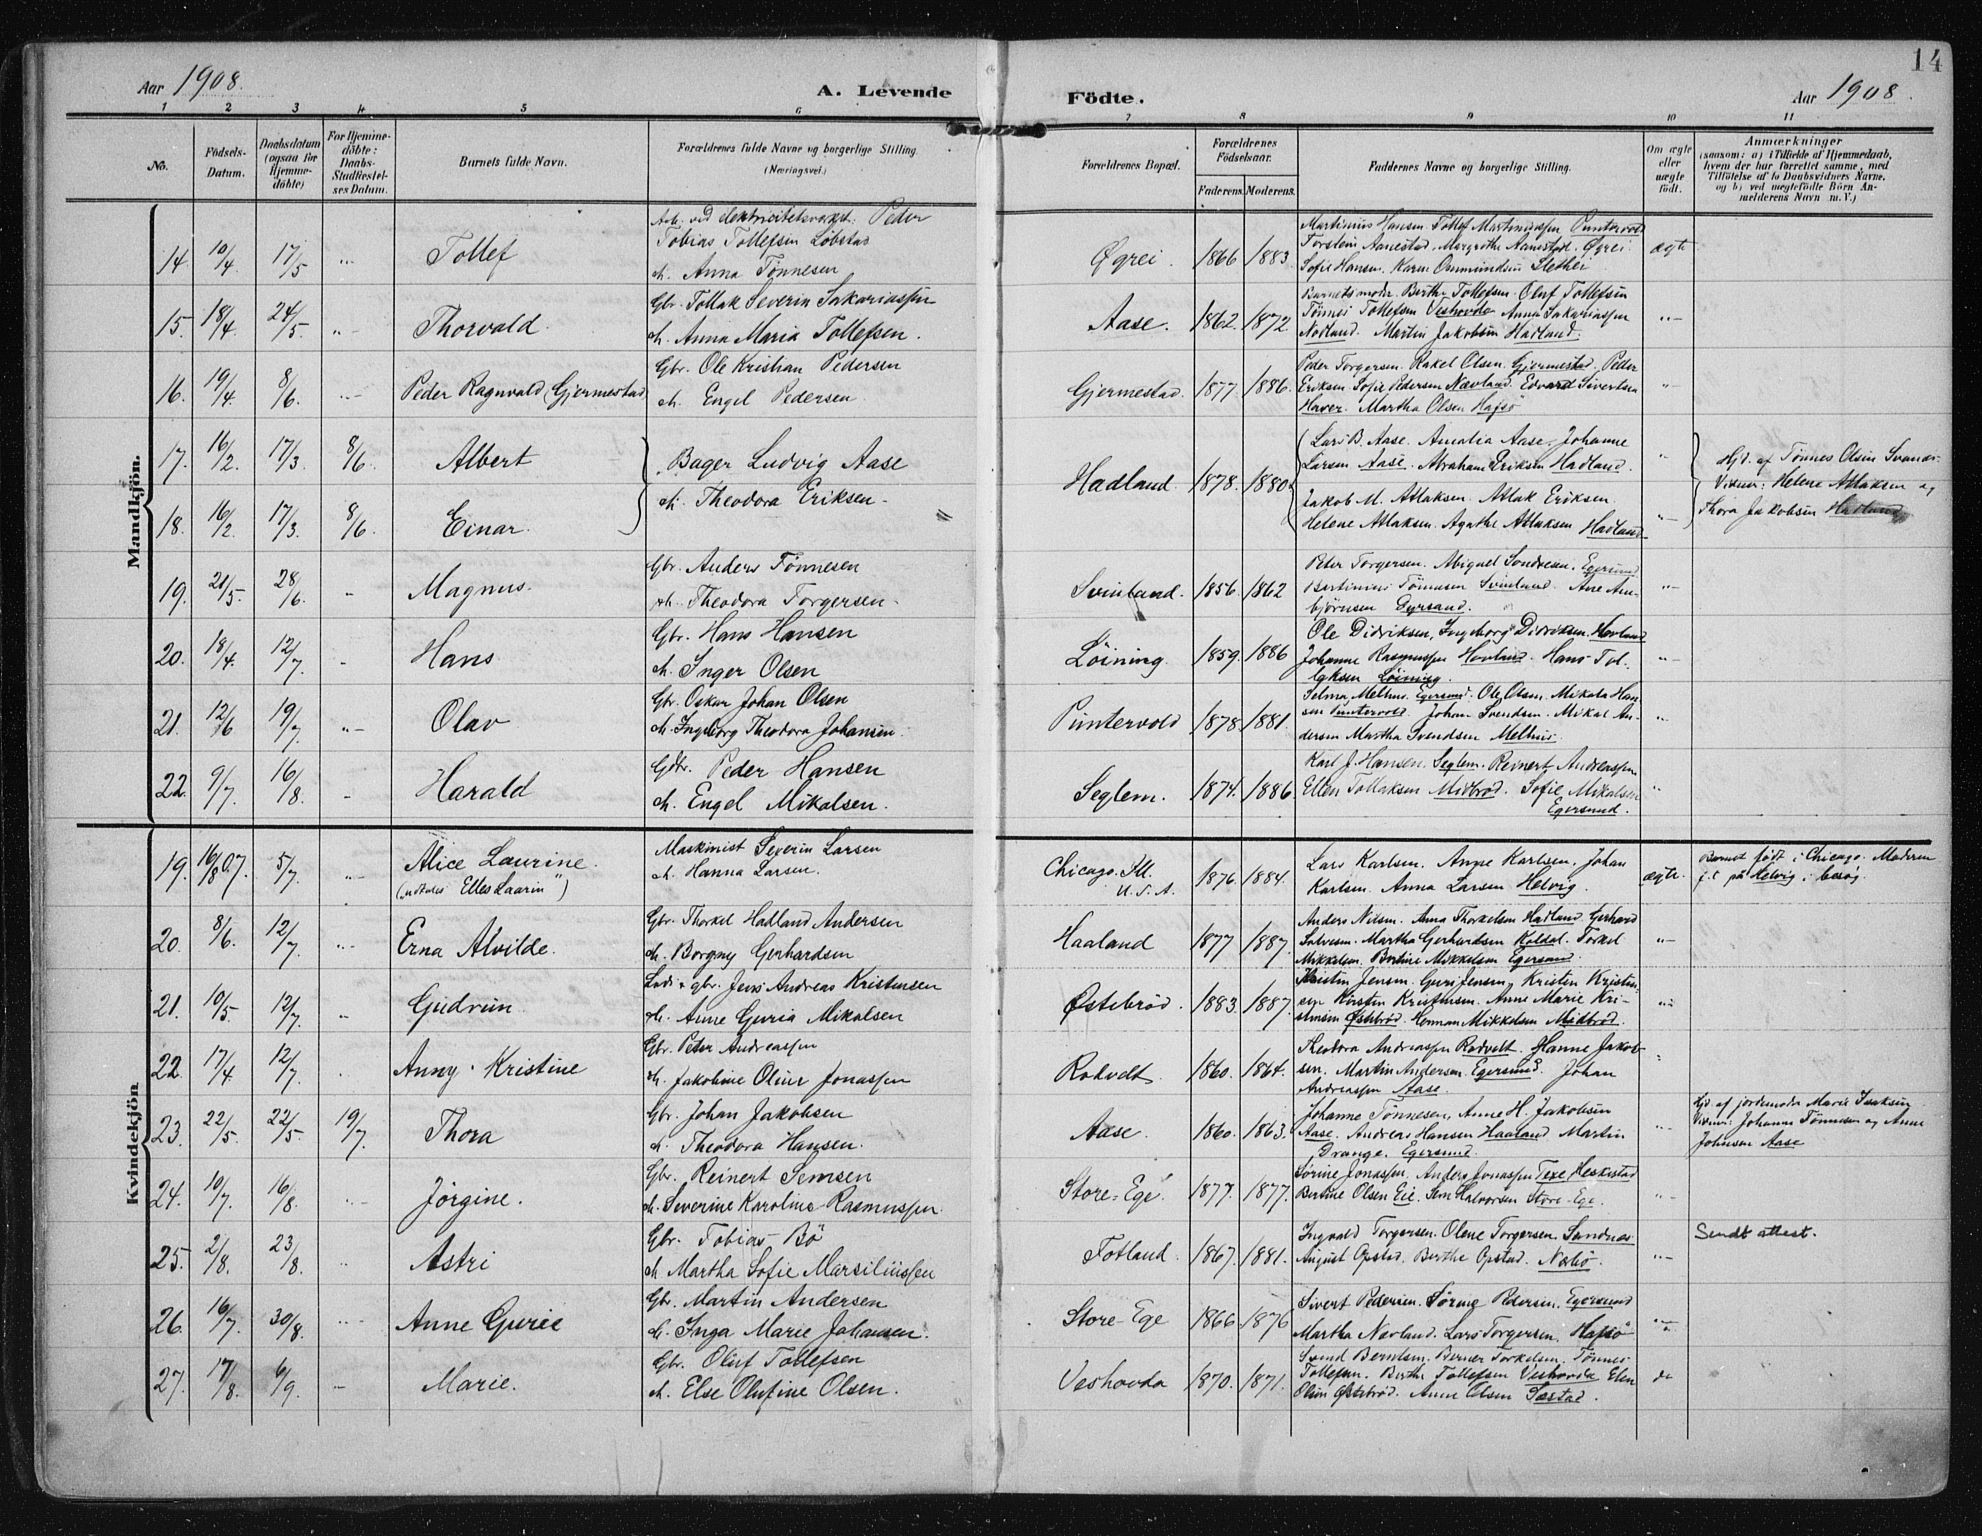 14
Aar 1908.
A. Levende
Födte.
Aar 1908.
1 2 3 4 5 6 7 8 9 10 11
No.
Födsels-
Datum.
Daabsdatum
(ogsaa for
Hjemme-
döbte)
For Hjemme-
döbte:
Daabs-
Stadfæstel-
ses Datum.
Barnets fulde Navn.
Forældrenes fulde Navne og borgerlige Stilling.
(Næringsvei.)
Forældrenes Bopæl.
Forældrenes
Födselsaar.
Faderens. Moderens.
Faddernes Navne og borgerlige Stilling.
Om ægte
eller
uægte
födt.
Anmærkninger
(saasom: a) i Tilfælde af Hjemmedaab,
hvem der har forrettet samme, med
Tilföielse af to Daabsvidners Navne,
og b) ved uægtefödte Börn An-
melderens Navn m. V.)
Mandkjön.
Arb. ved elektricitetsverket. Peder
Tobias Tollefsen Löbstad
h. Anna Tönnesen
14. 10/4 17/5 Tollef
Øgrei. 1866 1883
Martinius Hansen. Tollef Martiniussen Puntervold
Torstein Aanestad. Margrethe Aanestad. Øgrei
Sofie Hansen. Karen Ommundsen Slethei
ægte
15. 18/4 24/5 Thorvald.
Gbr. Tollak Severin Sakariassen
h. Anna Maria Tollefsen.
Aase. 1862. 1872.
Barnets moder. Berthe Tollefsen. Oluf Tollefsen
Tönnes Tollefsen Veshovda Anna Sakariassen
Nodland. Martin Jakobsen Hadland.
16. 19/4 8/6 Peder Ragnvald (Gjermestad)
Gbr. Ole Kristian Pedersen
h. Engel Pedersen.
Gjermestad. 1877. 1886.
Peder Torgersen. Rakel Olsen. Gjermestad. Peder
Eriksen. Sofie Pedersen Nævland. Edvard Sivertsen
Haver. Martha Olsen Hafsö
17. 16/2 17/3 8/6 Albert
Bager Ludvig Aase
h. Theodora Eriksen.
Hadland 1878. 1880.
Lars B. Aase. Amalia Aase. Johanne
Larsen Aase. Abraham Eriksen Hadland.
Hjd. af Tönnes Olsen Svanes.
Vidner: Helene Atlaksen og
Thora Jakobsen Hadland
18. 16/2 17/3 8/6 Einar.
Jakob M. Atlaksen. Atlak Eriksen.
Helene Atlaksen. Agathe Atlaksen Hadland
19. 21/5 28/6 Magnus.
Gbr. Anders Tönnesen
h. Theodora Torgersen.
Svinland. 1856. 1862
Peter Torgersen. Abigael Sondresen. Egersund
Bertinius Tönnesen Svinland. Ane Am-
björnsen Eyrsand.
20. 18/4 12/7 Hans
Gbr. Hans Hansen
h. Inger Olsen
Löining. 1859. 1886
Ole Didriksen, Ingeborg Didriksen. Hovland
Johanne Rasmussen Hovland. Hans Tol-
laksen Löining.
21. 12/6 19/7 Olav
Gbr. Oskar Johan Olsen
h. Ingeborg Theodora Johansen.
Puntervold 1878. 1881.
Selma Melhus. Egersund. Ole Olsen. Mikala Han-
sen Puntervold. Johan Svendsen. Mikal An-
dersen Martha Svendsen Melhus.
22. 9/7 16/8 Harald
Gbr. Peder Hansen
h. Engel Mikalsen.
Seglem. 1874. 1886.
Karl J. Hansen. Seglem. Reinert Andreassen
Ellen Tollaksen Midbrød. Sofie Mikalsen
Egersund.
Kvindekjön
19. 16/8 07. 5/7 Alice Laurine.
(udtales "Elles Laarin")
Maskinist Severin Larsen
h. Hanna Larsen.
Chicago. Ill.
U. S. A. 1876. 1884.
Lars Karlsen. Anne Karlsen. Johan
Karlsen. Anna Larsen Helvig.
ægte.
Barnet født i Chicago. Moderen
f. t. på Helvig i besøg.
20. 8/6 12/7 Erna Alvilde.
Gbr. Thorkel Hadland Andersen
h. Borgny Gerhardsen
Haaland 1877. 1887.
Anders Nilsen. Anna Thorkelsen Hadland Gerhard
Salvesen. Martha Gerhardsen Koldal. Torkel
Mikkelsen. Bertine Mikkelsen Egersund.
21. 10/5 12/7 Gudrun
Lods & gbr. Jens Andreas Kristensen
h. Anne Guria Mikalsen
Østebrød. 1883. 1887.
Kristin Jensen. Guri Jensen, Kristen Kristen-
sen Kirsten Kristensen. Anne Marie Kri-
stensen Østebrød. Herman Mikkelsen Midbrød.
22. 17/4 12/7 Anny Kristine
Gbr. Peter Andreassen
h. Jakobine Oline Jonassen
Rodvelt. 1860. 1864.
Theodora Andreassen Rodvelt. Hanne Jakob-
sen. Martin Andersen. Egersund. Johan
Andreassen Aase.
23. 22/5 22/5 19/7 Thora
Gbr. Johan Jakobsen
h. Theodora Hansen.
Aase. 1860. 1863.
Johanne Tönnesen, Anne H. Jakobsen
Aase. Andreas Hansen Haaland Martin
Drange. Egersund.
Hjd. af jordmoder Marie Isaksen.
Vidner: Johanne Tönnesen og Anne
Johnsen Aase
24. 10/7 16/8 Jörgine.
Gbr. Reinert Semsen
h. Severine Karoline Rasmussen.
Store-Ege. 1877. 1877.
Sörine Jonassen. Anders Jonassen Texe Heskestad
Bertine Olsen Eie. Sem Halvorsen Store-Ege.
25. 2/8 23/8 Astri
Gbr. Tobias Bö
h. Martha Sofie Marsiliussen
Fotland. 1867. 1881.
Ingvald Torgersen. Olene Torgersen. Sandnes
August Opstad. Berthe Opstad. Nærbö.
Sendt attest.
26. 16/7 30/8. Anne Gurie
Gbr. Martin Andersen
h. Inga Marie Johansen.
Store-Ege 1866 1876
Sivert Pedersen. Sörine Pedersen. Egersund
Martha Nævland. Lars Torgersen. Hafsö
27. 17/8 6/9 Marie.
Gbr. Oluf Tollefsen
h. Else Olufine Olsen.
Veshovda 1870. 1871.
Svend Berntsen. Berner Torkelsen. Tönnes
Tollefsen. Berthe Tollefsen Veshovda Elen
Olsen Østebrød. Anne Olsen Sæstad.
do